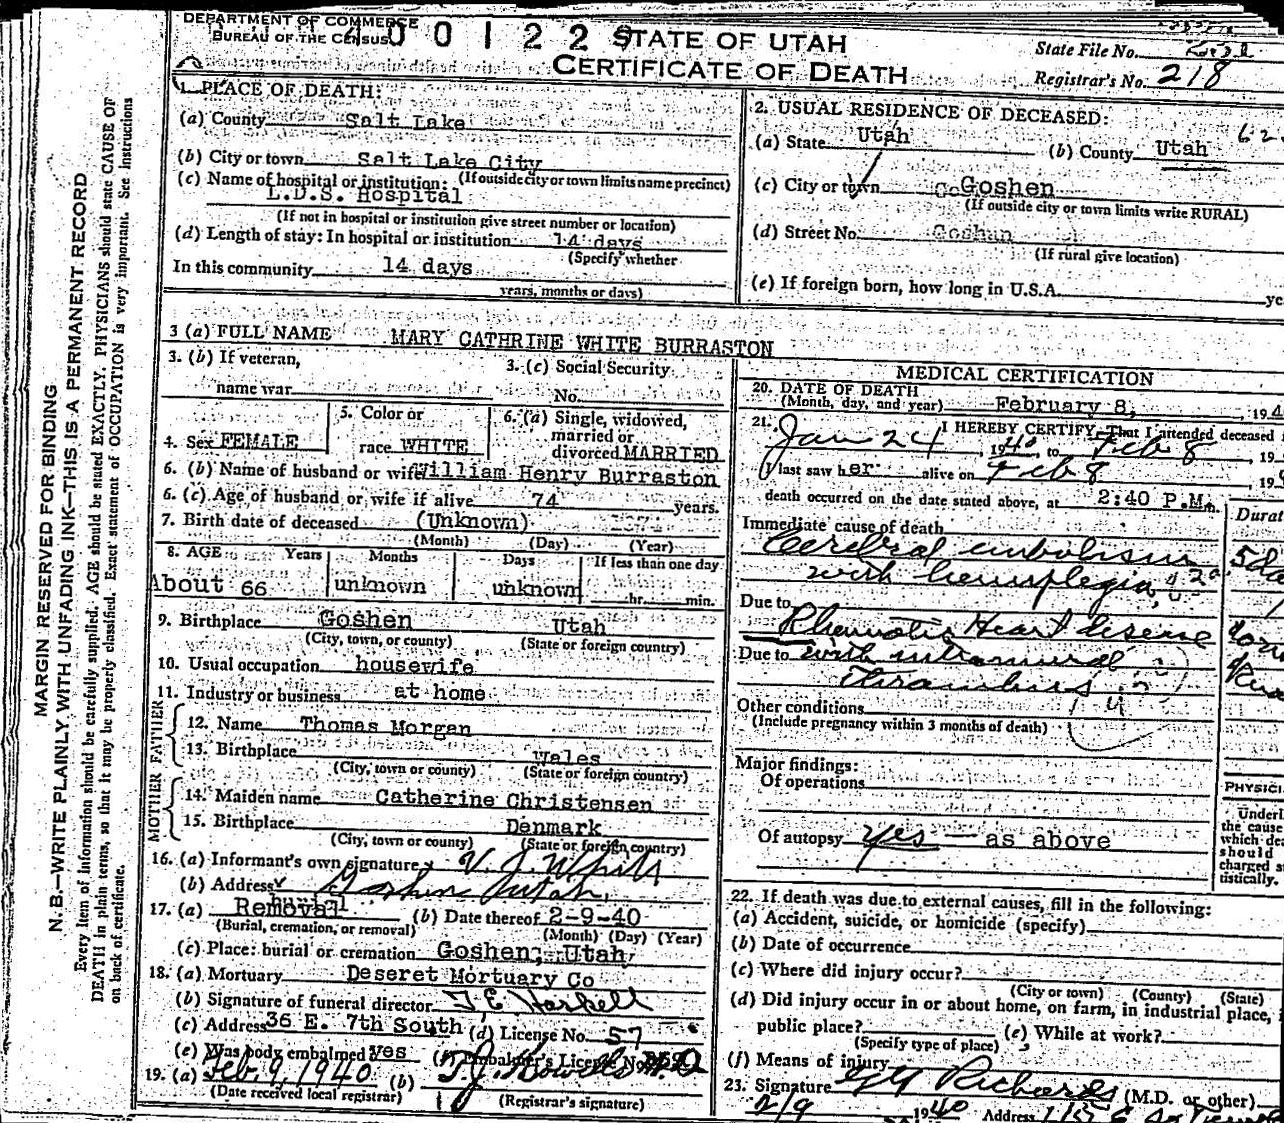 DEPARTMENT OF COMMERCE
BUREAU OF THE CENSUS
400122
STATE OF UTAH
CERTIFICATE OF DEATH
State File No.
Registrar's No. 218
MARGIN RESERVED FOR BINDING
N. B.—WRITE PLAINLY WITH UNFADING INK—THIS IS A PERMANENT RECORD
Every item of information should be carefully supplied. AGE should be stated EXACTLY. PHYSICIANS should state CAUSE OF
DEATH in plain terms, so that it may be properly classified. Exact statement of OCCUPATION is very important. See instructions
on back of certificate.
1. PLACE OF DEATH:
(a) County Salt Lake
(b) City or town Salt Lake City
(If outside city or town limits name precinct)
(c) Name of hospital or institution:
L.D.S. Hospital
(If not in hospital or institution give street number or location)
(d) Length of stay: In hospital or institution 14 days
(Specify whether
In this community 14 days
years, months or days)
2. USUAL RESIDENCE OF DECEASED:
(a) State Utah (b) County Utah
(c) City or town Goshen
(If outside city or town limits write RURAL)
(d) Street No. Goshen
(If rural give location)
(e) If foreign born, how long in U.S.A.
3 (a) FULL NAME MARY CATHRINE WHITE BURRASTON
3. (b) If veteran,
name war
3. (c) Social Security
No.
4. Sex FEMALE
5. Color or
race WHITE
6. (a) Single, widowed,
married or
divorced MARRIED
6. (b) Name of husband or wife William Henry Burraston
6. (c) Age of husband or wife if alive 74 years.
7. Birth date of deceased (Unknown)
(Month) (Day) (Year)
8. AGE Years Months Days If less than one day
About 66 unknown unknown hr. min.
9. Birthplace Goshen Utah
(City, town, or county) (State or foreign country)
10. Usual occupation housewife
11. Industry or business at home
FATHER
12. Name Thomas Morgan
13. Birthplace Wales
(City, town or county) (State or foreign country)
MOTHER
14. Maiden name Catherine Christensen
15. Birthplace Denmark
(City, town or county) (State or foreign country)
16. (a) Informant's own signature V. J. White
(b) Address Goshen Utah
17. (a) burial Removal (b) Date thereof 2-9-40
(Burial, cremation, or removal) (Month) (Day) (Year)
(c) Place: burial or cremation Goshen, Utah
18. (a) Mortuary Deseret Mortuary Co
(b) Signature of funeral director
(c) Address 36 E. 7th South (d) License No. 57
(e) Was body embalmed yes (f) Embalmer's License No.
19. (a) Feb. 9, 1940 (b)
(Date received local registrar) (Registrar's signature)
MEDICAL CERTIFICATION
20. DATE OF DEATH
(Month, day, and year) February 8, 194
21. I HEREBY CERTIFY, That I attended deceased
Jan 24, 1940, to Feb 8, 19
I last saw her alive on Feb 8, 19
death occurred on the date stated above, at 2:40 P.M.
Immediate cause of death
Cerebral embolism
with hemiplegia
Due to
Rheumatic Heart disease
Due to with intramural
thrombus
Other conditions
(Include pregnancy within 3 months of death)
Major findings:
Of operations
Of autopsy yes — as above
22. If death was due to external causes, fill in the following:
(a) Accident, suicide, or homicide (specify)
(b) Date of occurrence
(c) Where did injury occur?
(City or town) (County) (State)
(d) Did injury occur in or about home, on farm, in industrial place,
public place? (e) While at work?
(Specify type of place)
(f) Means of injury
23. Signature GG Richards (M.D. or other)
2/9 1940 Address